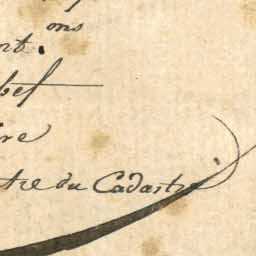 ons
nt.
bef
ire
tre du Cadastre